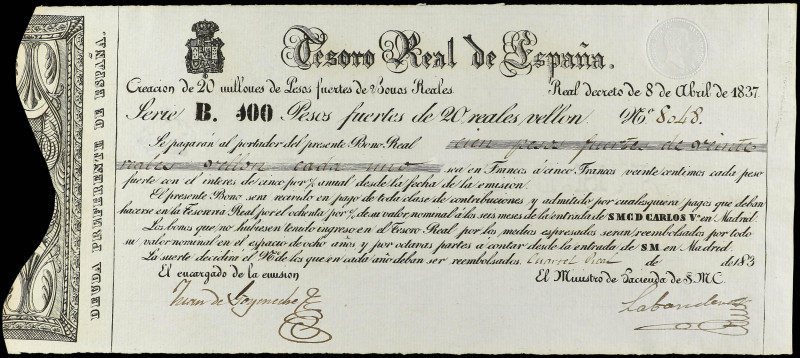 Tesoro Real de España.
Creacion de 20 millones de Pesos fuertes de Bonos Reales. Real decreto de 8 de Abril de 1837.
Serie B. 100 Pesos fuertes de 20 reales vellon Nº 8048.
Se pagarán al portador del presente Bono Real cien pesos fuertes de veinte
reales vellon cada uno sea en Francos á cinco Francos veinte centimos cada peso
fuerte con el interes de cinco por % anual desde la fecha de la emision.
El presente Bono sera recevido en pago de toda clase de contribuciones y admitido por cualesquiera pagos que deban
hacerse en la Tesoreria Real por el ochenta por % de su valor nominal a los seis meses de la entrada de S M C D CARLOS Vº en Madrid.
Los bonos que no hubiesen tenido ingreso en el Tesoro Real por los medios espresados seran reembolsados por todo
su valor nominal en el espacio de ocho años y por octavas partes a contar desde la entrada de S M en Madrid.
La suerte decidira el Nº de los que en cada año deban ser reembolsados. Cuartel Real de de 183
El encargado de la emision El Ministro de Hacienda de S.M.C.
Juan de Goyeneche
Labandero
DEUDA PREFERENTE DE ESPAÑA.